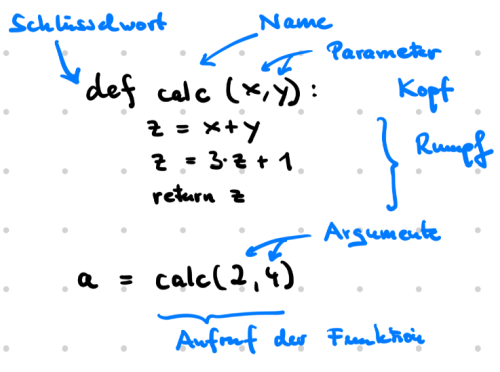 Schlüsselwort Name
Parameter
def calc (x,y): Kopf
z = x+y
Rumpf
z = 3·z + 1
return z
Argumente
a = calc(2,4)
Aufruf der Funktion